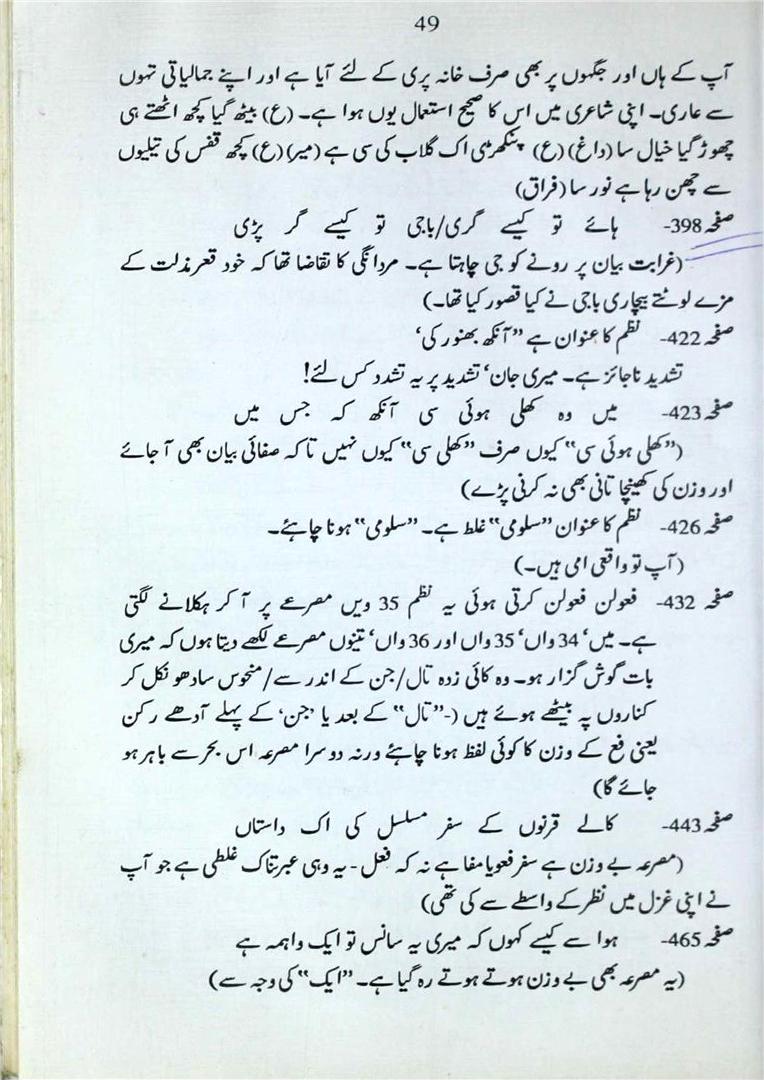 49
آپ کے ہاں اور جگہوں پر بھی صرف خانہ پری کے لئے آیا ہے اور اپنے جمالیاتی تہوں
سے عاری۔ اپنی شاعری میں اس کا صحیح استعمال یوں ہوا ہے۔ (ع) بیٹھ گیا کچھ اٹھتے ہی
چھوڑ گیا خیال سا (داغ) (ع) پنکھڑی اک گلاب کی سی ہے (میر) (ع) کچھ قفس کی تیلیوں
سے چھن رہا ہے نور سا (فراق)
صفحہ 398- ہائے تو کیسے گری/باجی تو کیسے گر پڑی
(غرابت بیان پر رونے کو جی چاہتا ہے۔ مردانگی کا تقاضا تھا کہ خود قعر مذلت کے
مزے لوٹتے بیچاری باجی نے کیا قصور کیا تھا۔)
صفحہ 422- نظم کا عنوان ہے ”آنکھ بھنور کی‘
تشدید ناجائز ہے۔ میری جان‘ تشدید پر یہ تشدد کس لئے!
صفحہ 423- میں وہ کھلی ہوئی سی آنکھ کہ جس میں
(”کھلی ہوئی سی“ کیوں صرف ”کھلی سی“ کیوں نہیں تاکہ صفائی بیان بھی آ جائے
اور وزن کی کھینچا تانی بھی نہ کرنی پڑے)
صفحہ 426- نظم کا عنوان ”سلومی“ غلط ہے۔ ”سلومی“ ہونا چاہئے۔
(آپ تو واقعی امی ہیں۔)
صفحہ 432- فعولن فعولن کرتی ہوئی یہ نظم 35 ویں مصرعے پر آ کر ہکلانے لگتی
ہے۔ میں‘ 34 واں‘ 35 واں اور 36 واں‘ تینوں مصرعے لکھے دیتا ہوں کہ میری
بات گوش گزار ہو۔ وہ کائی زدہ تال/جن کے اندر سے/منحوس سادھو نکل کر
کناروں پہ بیٹھے ہوئے ہیں (-”تال“ کے بعد یا ’جن‘ کے پہلے آدھے رکن
یعنی فع کے وزن کا کوئی لفظ ہونا چاہئے ورنہ دوسرا مصرعہ اس بحر سے باہر ہو
جائے گا)
صفحہ 443- کالے قرنوں کے سفر مسلسل کی اک داستاں
(مصرعہ بے وزن ہے سفر فعو یا مفا ہے نہ کہ فعل- یہ وہی عبرتناک غلطی ہے جو آپ
نے اپنی غزل میں نظر کے واسطے سے کی تھی)
صفحہ 465- ہوا سے کیسے کہوں کہ میری یہ سانس تو ایک واہمہ ہے
(یہ مصرعہ بھی بے وزن ہوتے ہوتے رہ گیا ہے۔ ”ایک“ کی وجہ سے)